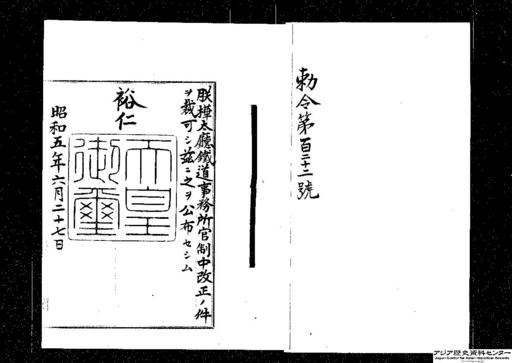 勅令第百二十二號
朕樺太廳鐵道事務所官制中改正ノ件
ヲ裁可シ茲ニ之ヲ公布セシム
裕仁
天皇
御璽
昭和五年六月二十七日
アジア歴史資料センター
Japan Center for Asian Historical Records